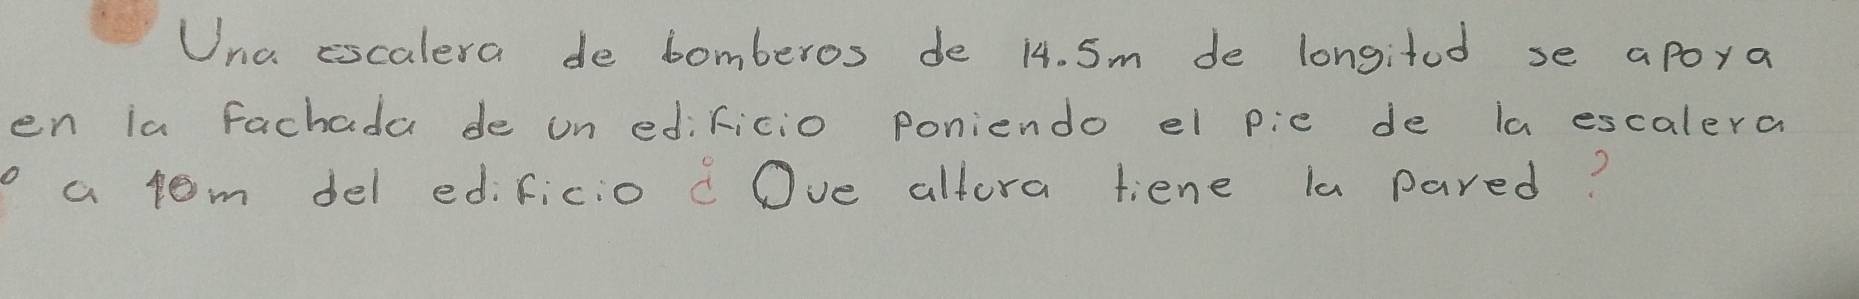 Una escalera de bomberos de 14.5m de longitud se apoya
en la fachada de un edificio poniendo el pie de la escalera
a 10m del edificio ¿ Que altura tiene la pared ?